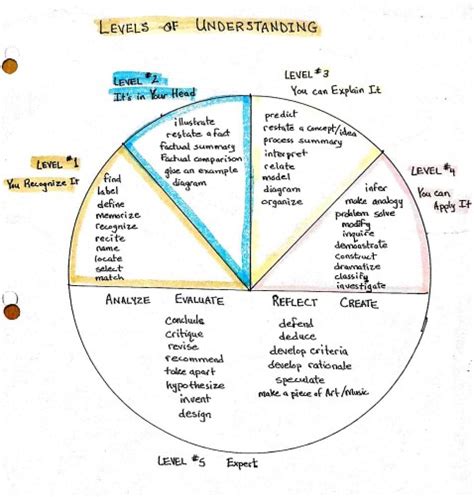 LEVELS OF UNDERSTANDING
LEVEL #1
You Recognize It
find
label
define
memorize
recognize
recite
name
locate
select
match
LEVEL #2
It's in Your Head
illustrate
restate a fact
factual summary
Factual comparison
give an example
diagram
LEVEL #3
You can Explain It
predict
restate a concept/idea
process summary
interpret
relate
model
diagram
organize
LEVEL #4
You can
Apply It
infer
make analogy
problem solve
modify
inquire
demonstrate
construct
dramatize
classify
investigate
ANALYZE EVALUATE REFLECT CREATE
conclude
critique
revise
recommend
take apart
hypothesize
invent
design
defend
deduce
develop criteria
develop rationale
speculate
make a piece of Art/Music
LEVEL #5 Expert